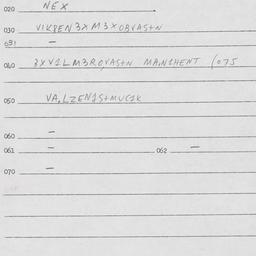 020 NEX
030 VIKBEN3XM3XOBVAS+N
031 —
040 3XV1LM3ROVAS+N MAN1HENT (075
050 VA,LZEN1S+MUC1K
060 —
061 — 062 —
070 —